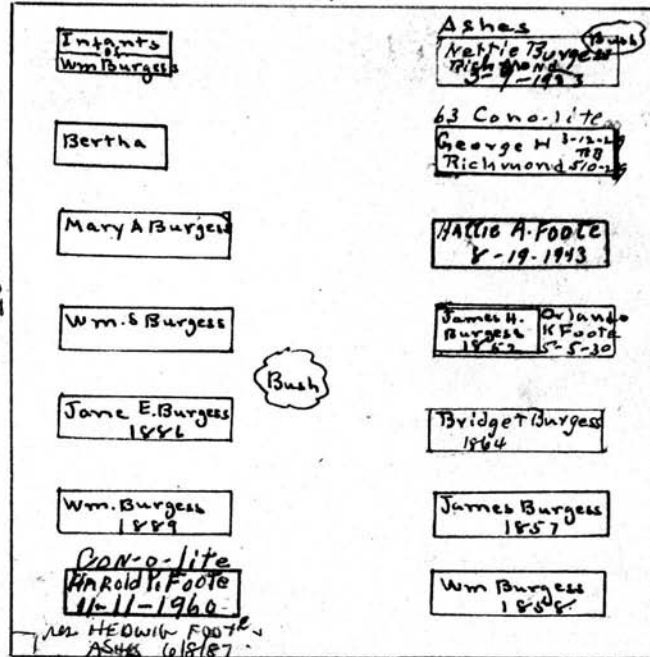 Infants
of
Wm Burgess
Bertha
Mary A Burgess
Wm. S Burgess
Jane E. Burgess
1886
Wm. Burgess
1889
CON-O-lite
HAROLD P. FOOTE
11-11-1960
HEDWIG FOOTE
ASHES 6/8/87
Bush
Ashes
Nettie Burgess
Richmond
Bush
63 Cono-lite
George H
Richmond
HALLIE A. FOOTE
8-19-1943
James H.
Burgess
1852
Orlando
K Foote
5-5-30
Bridget Burgess
1864
James Burgess
1857
Wm Burgess
1858